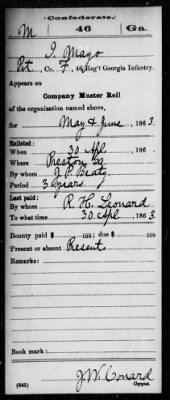 (Confederate.)
M 46 Ga.
I. Mayo
Pvt, Co. F, 46 Reg't Georgia Infantry.
Appears on
Company Muster Roll
of the organization named above,
for May & June, 1863.
Enlisted:
When 30 Apl, 186
Where Preston Ga
By whom J. P. Beaty
Period 3 years
Last paid:
By whom R. H. Leonard
To what time 30 Apl, 1863.
Bounty paid $ 100; due $ 100
Present or absent Present
Remarks:
Book mark:
J W Conard
(642) Copyist.